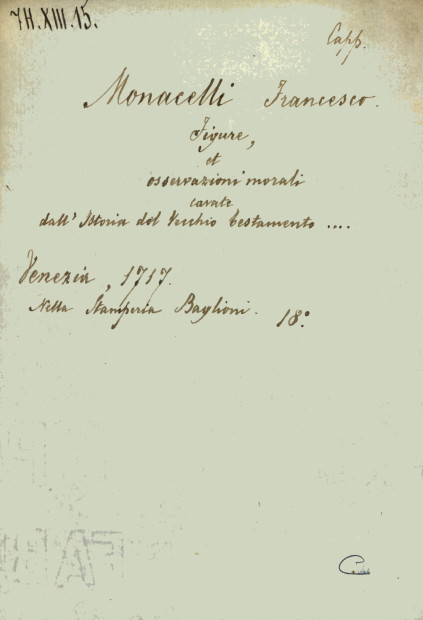 7H.XIII.15.
Capp.
Monacelli Francesco.
Figure,
et
osservazioni morali
cavate
dall' Istoria del Vecchio Testamento ....
Venezia, 1717.
Nella Stamperia Baglioni. 18°.
C.